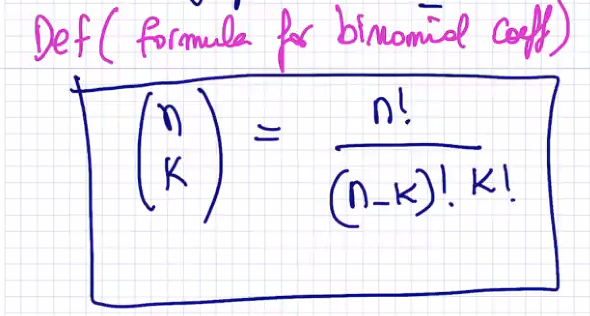 Def ( formula for binomial coeff)
(n
k) = n!
(n-k)! k!